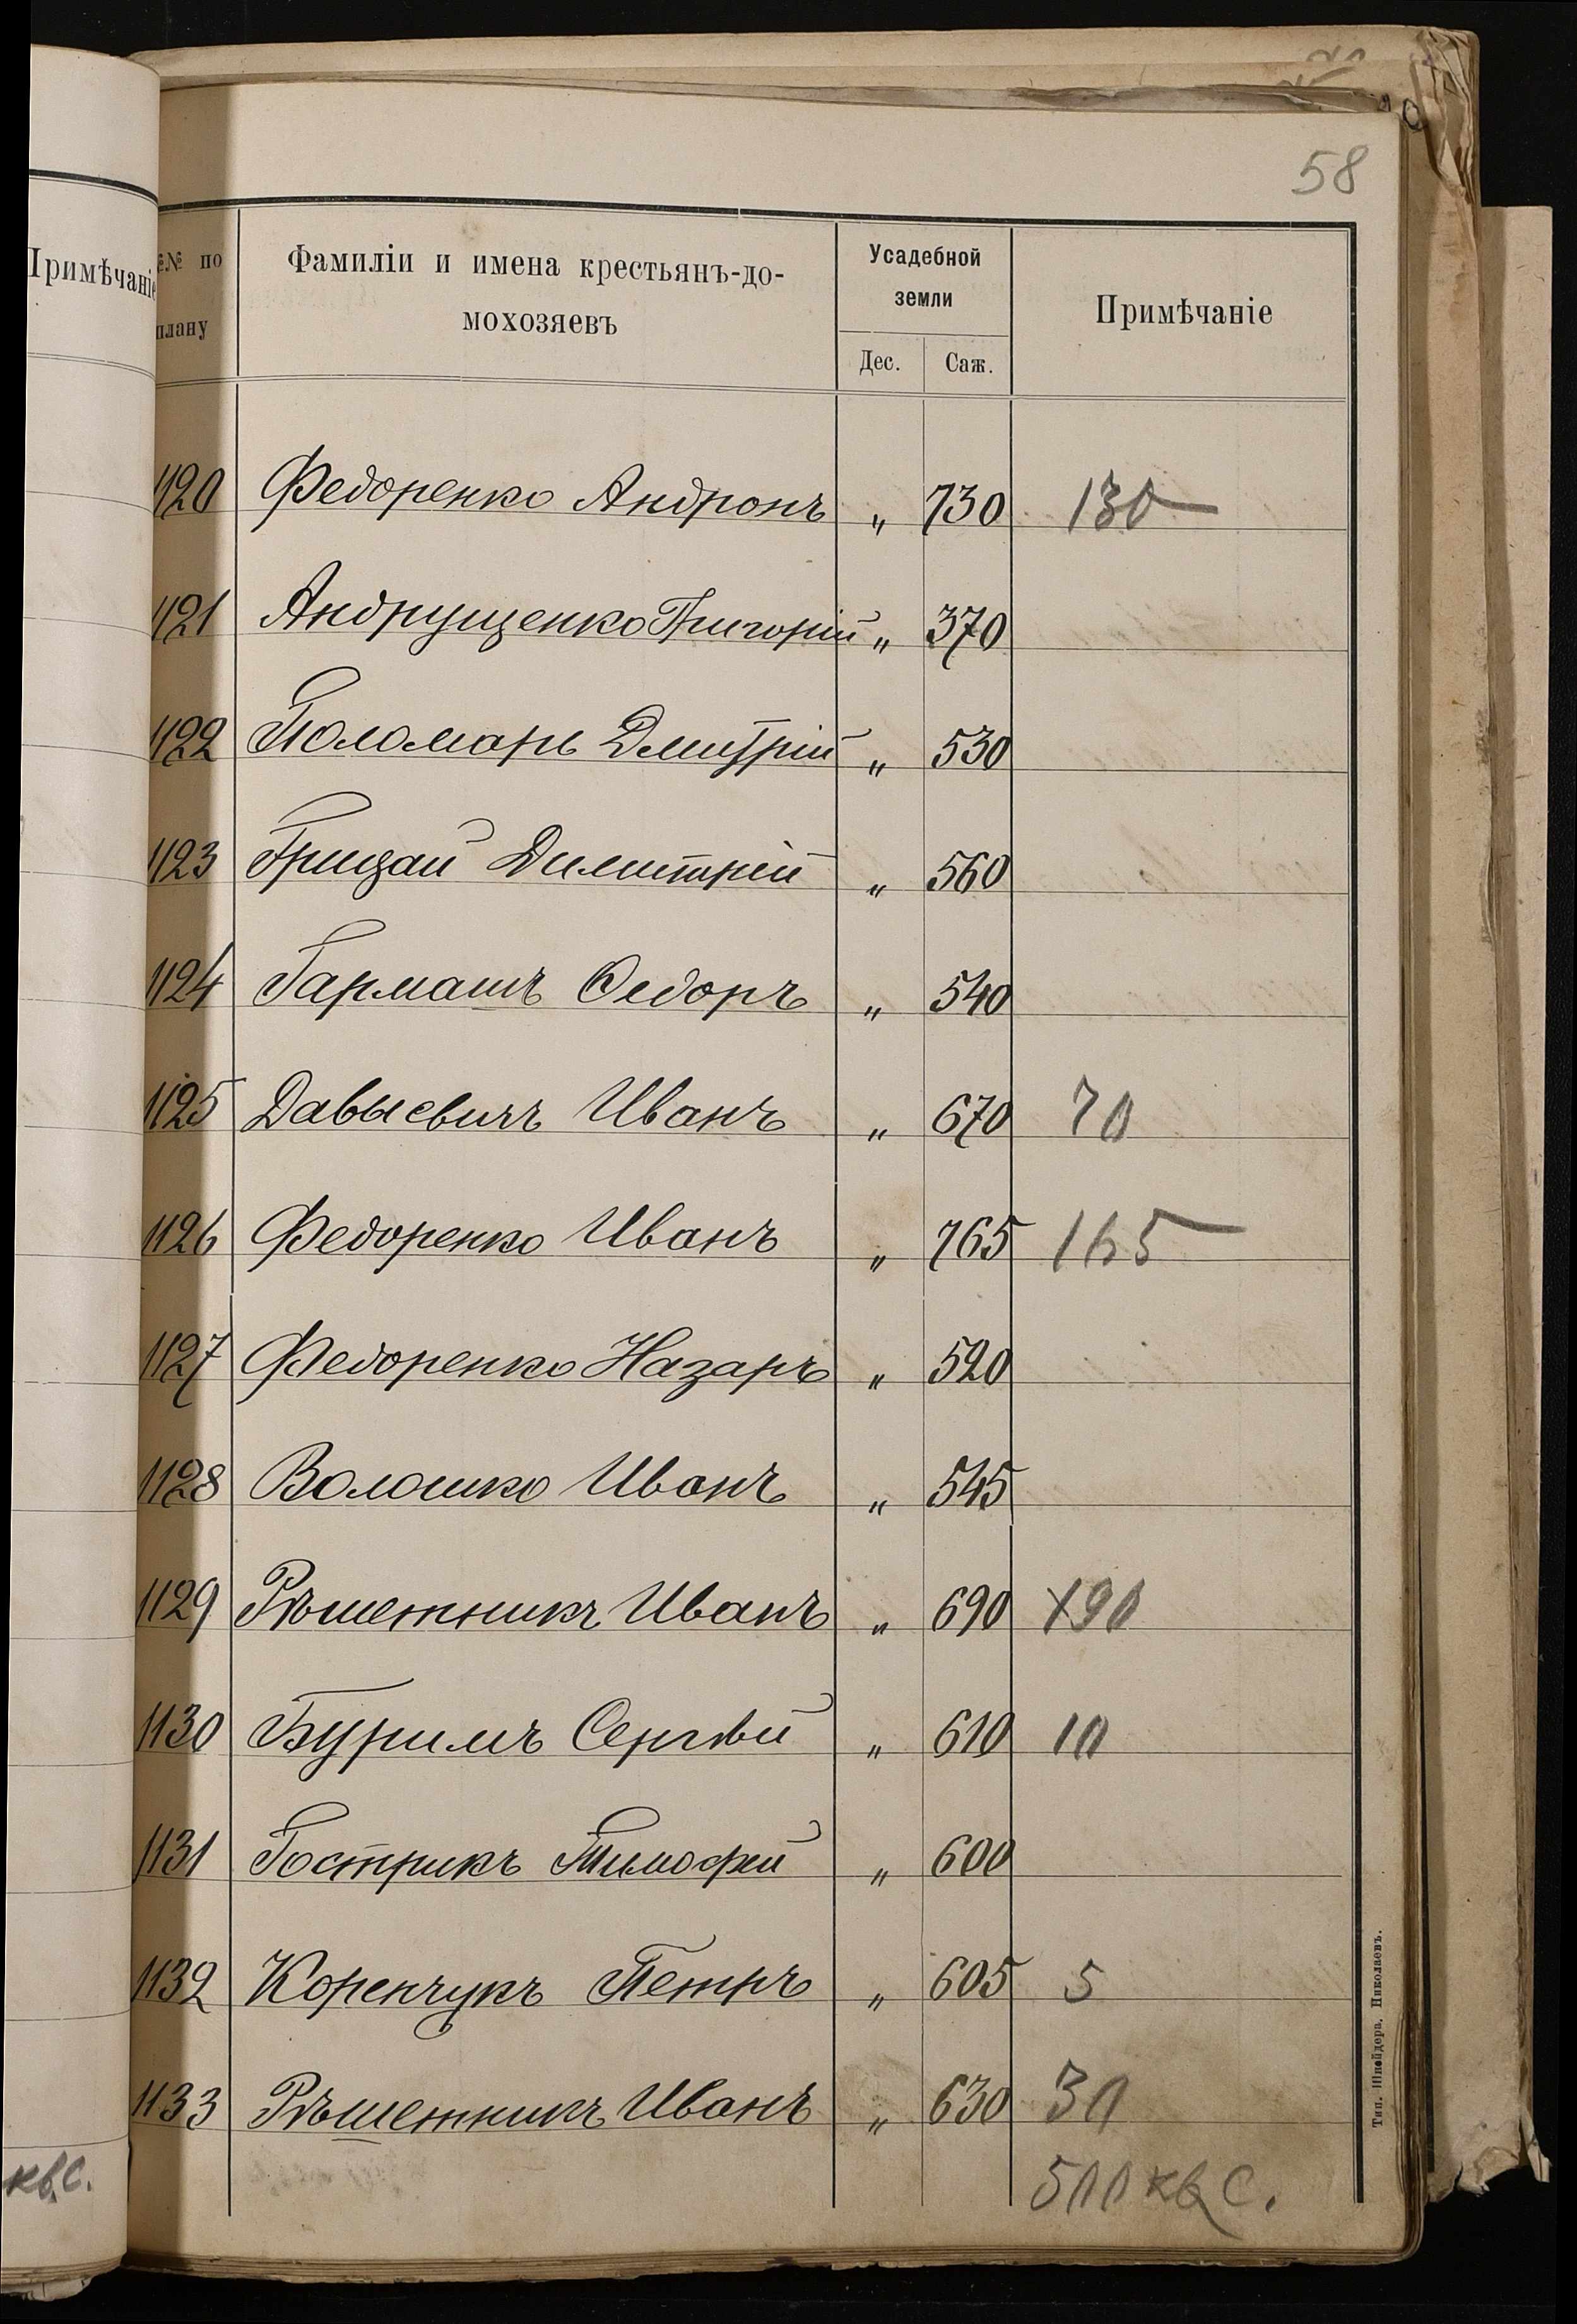 58
Примѣчаніе
№№ по плану
Фамиліи и имена крестьянъ-до-
мохозяевъ
Усадебной
земли
Дес. Саж.
Примѣчаніе
1120 Федоренко Андронъ „ 730 130
1121 Андрущенко Григорій „ 370
1122 Поломарь Дмитрій „ 530
1123 Грицай Димитрій „ 560
1124 Гармашъ Ѳедоръ „ 540
1125 Давыевичъ Иванъ „ 670 70
1126 Федоренко Иванъ „ 765 165
1127 Федоренко Назаръ „ 520
1128 Волошко Иванъ „ 545
1129 Рѣшетникъ Иванъ „ 690 90
1130 Буримъ Сергѣй „ 610 10
1131 Гострикъ Тимофей „ 600
1132 Коренчукъ Петръ „ 605 5
1133 Рѣшетникъ Иванъ „ 630 30
500 кв С.
кв.с.
Тип. Шнейдера, Николаевъ.